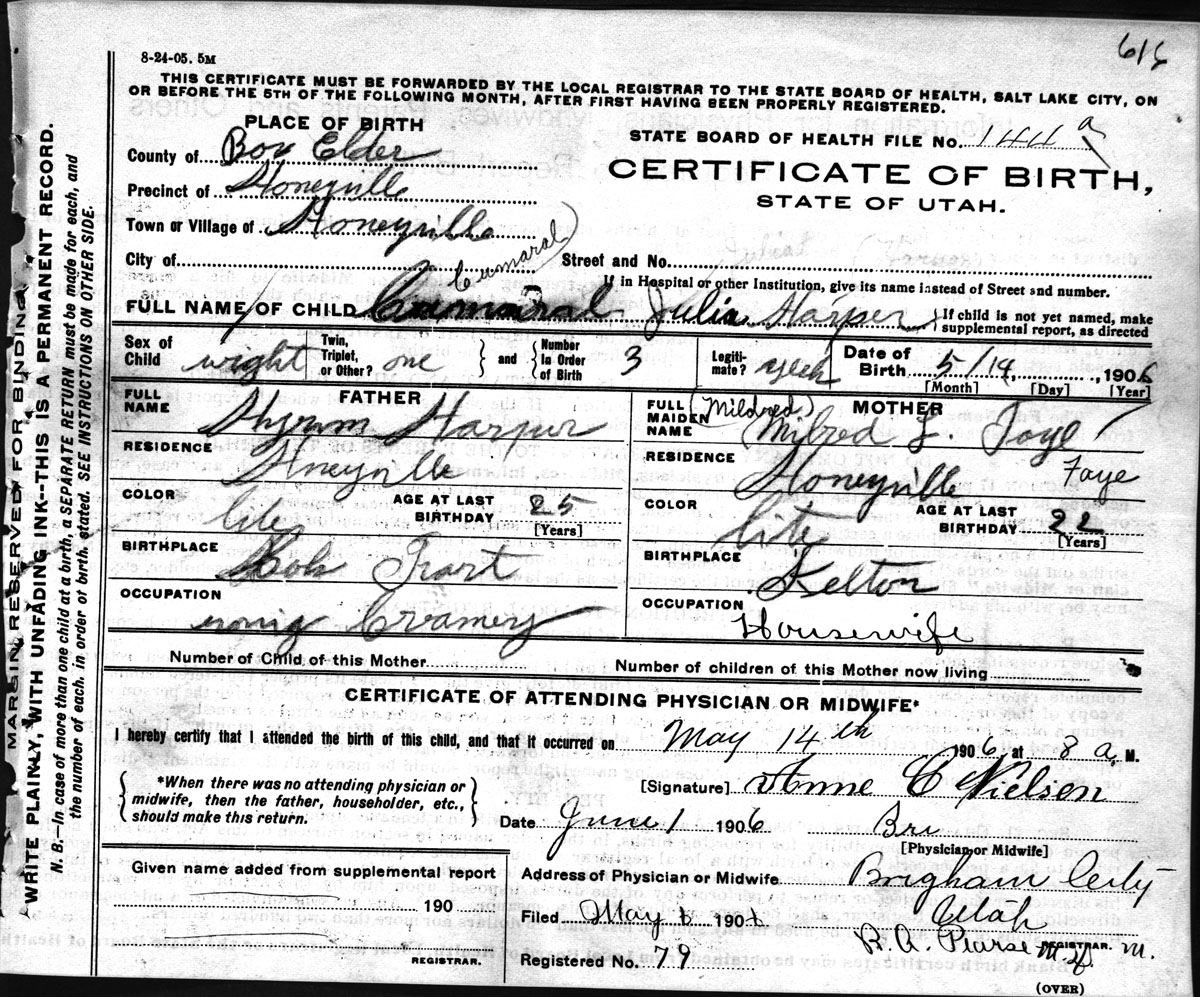 616
8-24-05. 5M
THIS CERTIFICATE MUST BE FORWARDED BY THE LOCAL REGISTRAR TO THE STATE BOARD OF HEALTH, SALT LAKE CITY, ON
OR BEFORE THE 5TH OF THE FOLLOWING MONTH, AFTER FIRST HAVING BEEN PROPERLY REGISTERED.
PLACE OF BIRTH
STATE BOARD OF HEALTH FILE No. 144 a
County of Box Elder
CERTIFICATE OF BIRTH,
Precinct of Honeyville
STATE OF UTAH.
Town or Village of Honeyville
City of
Street and No.
Cumaral)
If in Hospital or other Institution, give its name instead of Street and number.
FULL NAME OF CHILD Julia Harper } If child is not yet named, make supplemental report, as directed
Sex of Child wight Twin, Triplet, or Other? one } and { Number In Order of Birth 3 Legitimate? Date of Birth 5/14, 1906
[Month] [Day] [Year]
FATHER
FULL NAME Hyrum Harper
RESIDENCE
COLOR
AGE AT LAST BIRTHDAY 25
[Years]
BIRTHPLACE
OCCUPATION
MOTHER
FULL MAIDEN NAME (Mildred) Milred L. Faye
RESIDENCE Honeyville
COLOR
AGE AT LAST BIRTHDAY 22
[Years]
BIRTHPLACE Kelton
OCCUPATION Housewife
Number of Child of this Mother
Number of children of this Mother now living
CERTIFICATE OF ATTENDING PHYSICIAN OR MIDWIFE*
I hereby certify that I attended the birth of this child, and that it occurred on May 14th 1906, at 8 a, M.
{ *When there was no attending physician or
midwife, then the father, householder, etc.,
should make this return. }
[Signature] Anne C Nielsen
Date June 1 1906 Bri
[Physician or Midwife]
Given name added from supplemental report
190
REGISTRAR.
Address of Physician or Midwife Brigham City
Utah
Filed May 190
R. A. Pearse M.D.
REGISTRAR.
Registered No. 79
(OVER)
MARGIN RESERVED FOR BINDING
WRITE PLAINLY, WITH UNFADING INK--THIS IS A PERMANENT RECORD.
N. B.—In case of more than one child at a birth, a SEPARATE RETURN must be made for each, and
the number of each, in order of birth, stated. SEE INSTRUCTIONS ON OTHER SIDE.